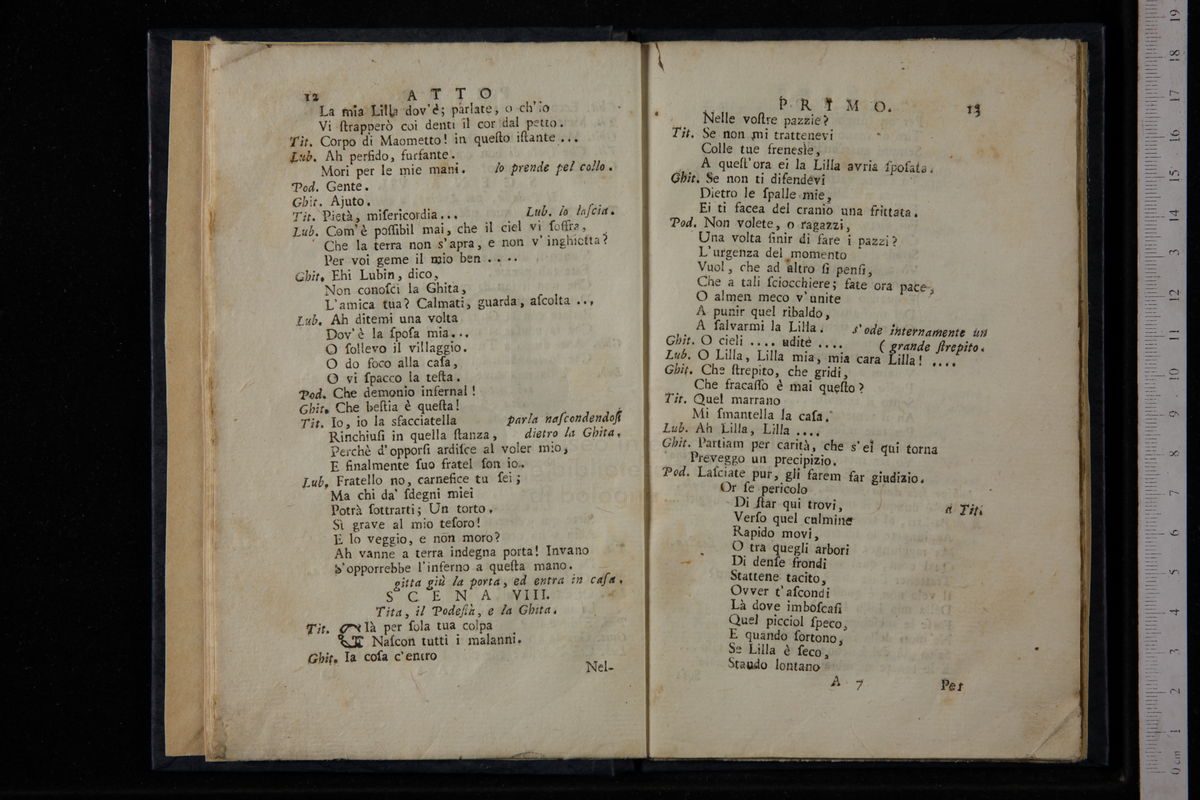 12 ATTO
La mia Lilla dov'è; parlate, o ch'io
Vi ſtrapperò coi denti il cor dal petto.
Tit. Corpo di Maometto! in queſto iſtante ...
Lub. Ah perfido, furfante.
Mori per le mie mani. lo prende pel collo.
Pod. Gente.
Ghit. Ajuto.
Tit. Pietà, miſericordia... Lub. lo laſcia.
Lub. Com'è poſſibil mai, che il ciel vi ſoffra,
Che la terra non s'apra, e non v'inghiotta?
Per voi geme il mio ben ....
Ghit. Ehi Lubin, dico,
Non conoſci la Ghita,
L'amica tua? Calmati, guarda, aſcolta ...
Lub. Ah ditemi una volta
Dov'è la ſpoſa mia...
O ſollevo il villaggio.
O do foco alla caſa,
O vi ſpacco la teſta.
Pod. Che demonio infernal!
Ghit. Che beſtia è queſta!
Tit. Io, io la sfacciatella parla naſcondendoſi
Rinchiuſi in quella ſtanza, dietro la Ghita.
Perchè d'opporſi ardiſce al voler mio,
E finalmente ſuo fratel ſon io.
Lub. Fratello no, carnefice tu ſei;
Ma chi da' ſdegni miei
Potrà ſottrarti; Un torto.
Sì grave al mio teſoro!
E lo veggio, e non moro?
Ah vanne a terra indegna porta! Invano
S'opporrebbe l'inferno a queſta mano.
gitta giù la porta, ed entra in caſa.
SCENA VIII.
Tita, il Podeſtà, e la Ghita.
Tit. Già per ſola tua colpa
Naſcon tutti i malanni.
Ghit. Ia coſa c'entro
Nel-
PRIMO. 13
Nelle voſtre pazzie?
Tit. Se non mi trattenevi
Colle tue freneſìe,
A queſt'ora ei la Lilla avria ſpoſata.
Ghit. Se non ti difendevi
Dietro le ſpalle mie,
Ei ti facea del cranio una frittata.
Pod. Non volete, o ragazzi,
Una volta finir di fare i pazzi?
L'urgenza del momento
Vuol, che ad altro ſi penſi,
Che a tali ſciocchiere; fate ora pace,
O almen meco v'unite
A punir quel ribaldo,
A ſalvarmi la Lilla. s'ode internamente un
Ghit. O cieli .... udite .... ( grande ſtrepito.
Lub. O Lilla, Lilla mia, mia cara Lilla! ....
Ghit. Che ſtrepito, che gridi,
Che fracaſſo è mai queſto?
Tit. Quel marrano
Mi ſmantella la caſa.
Lub. Ah Lilla, Lilla ....
Ghit. Partiam per carità, che s'ei qui torna
Preveggo un precipizio.
Pod. Laſciate pur, gli farem far giudizio.
Or ſe pericolo
Di ſtar qui trovi, a Tit.
Verſo quel culmine
Rapido movi,
O tra quegli arbori
Di denſe frondi
Stattene tacito,
Ovver t'aſcondi
Là dove imboſcaſi
Quel picciol ſpeco,
E quando ſortono,
Se Lilla è ſeco,
Stando lontano
A 7 Per